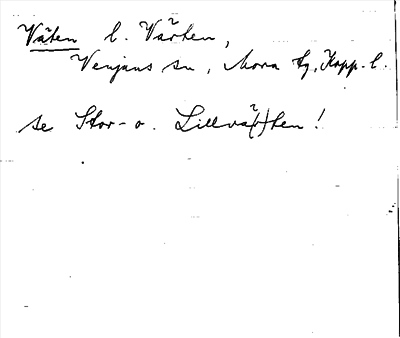 Våten l. Vårten,
Venjans sn, Mora tg, Kopp. l.
se Stor- o. Lillvå(r)ten!